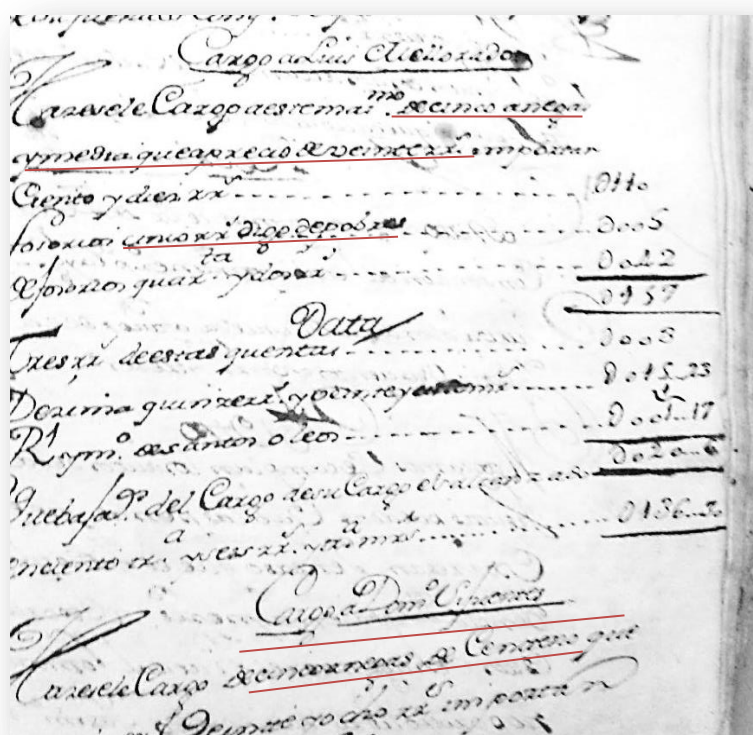 Cargo a Luis Mellorado
Hazesele Cargo a este mai.mo de cinco anegas
y media que a precio de veinte rrs. importan
Ciento y diez rrs 0110
fororios cinco rrs digo de pobres 0005
de fororios quar.ta y dos rrs 0042
0157
Data
Tres rrs de estas quentas 0003
Dezima quinze rrs. y veinte y tres mrs 0015..23
R.l y m.o de santos oleos 0001..17
0020..6
Que bajad.s del Cargo de su Cargo es alcanzado
en ciento tr.a y seis rrs. y tr.a mrs 0136..30
Cargo a Dom.o Sifuentes
Hazesele Cargo de cinco anegas de Centeno que
veinte y ocho rrs importan